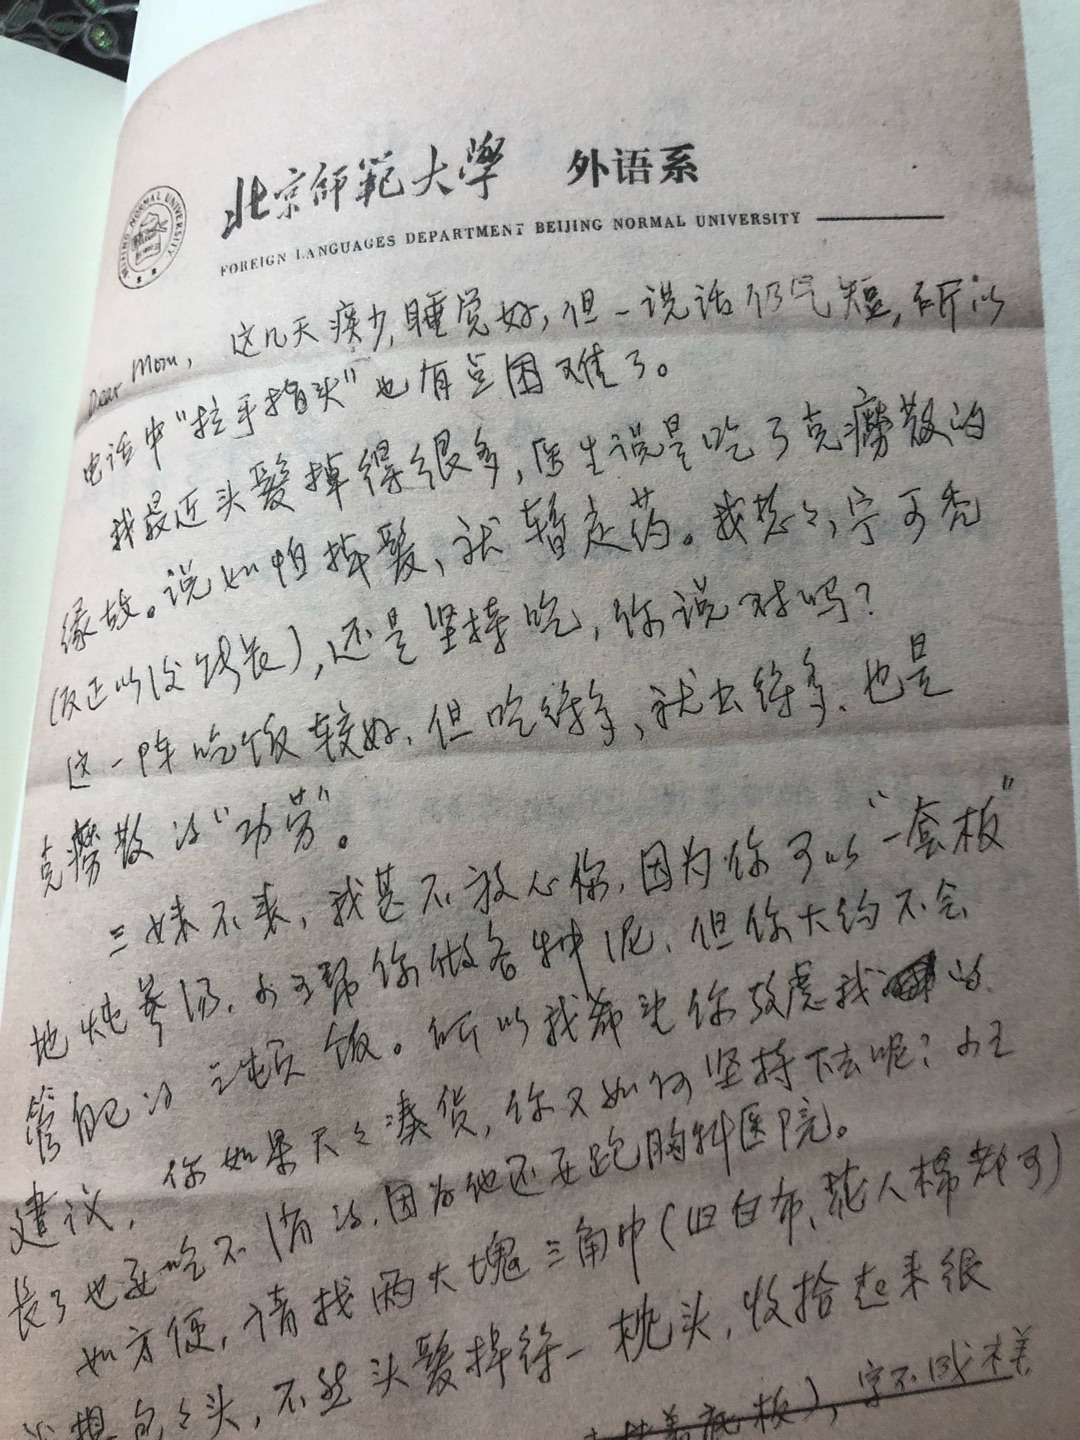 北京師範大學 外语系
BEIJING NORMAL UNIVERSITY
FOREIGN LANGUAGES DEPARTMENT BEIJING NORMAL UNIVERSITY
Dear Mom, 这几天痰少,睡觉好,但一说话仍气短,所以
电话中"拉手指头"也有点困难了。
我最近头髮掉得很多,医生说是吃了克癆散的
缘故。说如怕掉髮,就暂定药。我想々,宁可秃
(反正以后能长),还是坚持吃,你说对吗?
这一阵吃饭较好,但吃得多,就出得多,也是
克癆散的"功劳"。
三妹不来,我甚不放心你,因为你可以"一套板"
地炖参汤,小王帮你做各种泥,但你大约不会
管自己的三顿饭。所以我希望你考虑我的
建议,你如果天々凑货,你又如何坚持下去呢?小王
长了也要吃不消的,因为他还要跑胸科医院。
如方便,请找两大块三角巾(旧白布、 人棉都可)
想包々头,不然头髮掉得一枕头,收拾起来很
板),字不成样